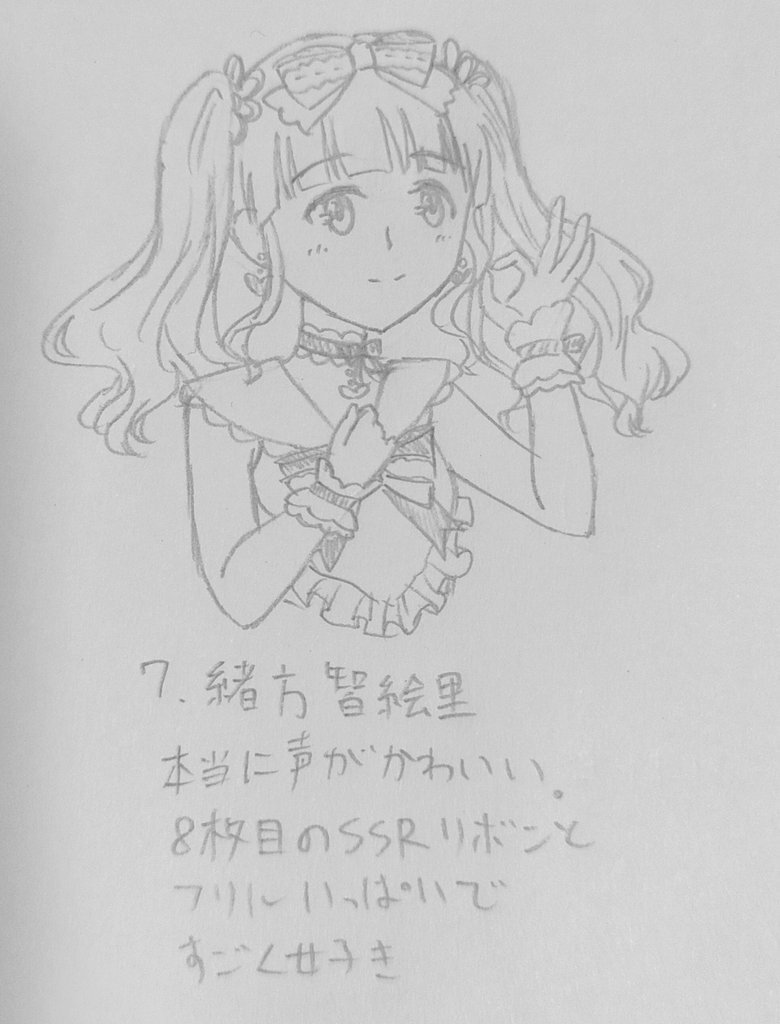 7. 緒方智絵里
本当に声がかわいい。
8枚目のSSRリボンと
フリルいっぱいで
すごく好き